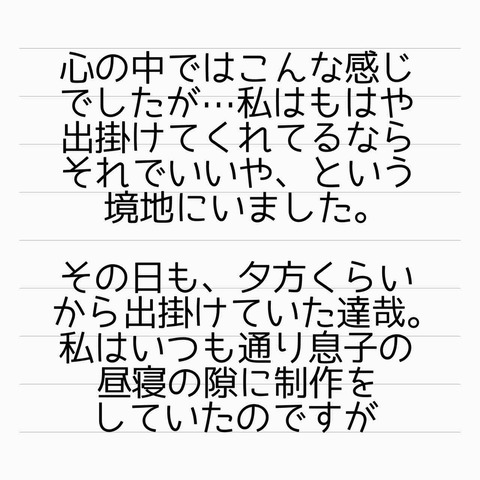 心の中ではこんな感じ
でしたが…私はもはや
出掛けてくれてるなら
それでいいや、という
境地にいました。
その日も、夕方くらい
から出掛けていた達哉。
私はいつも通り息子の
昼寝の隙に制作を
していたのですが